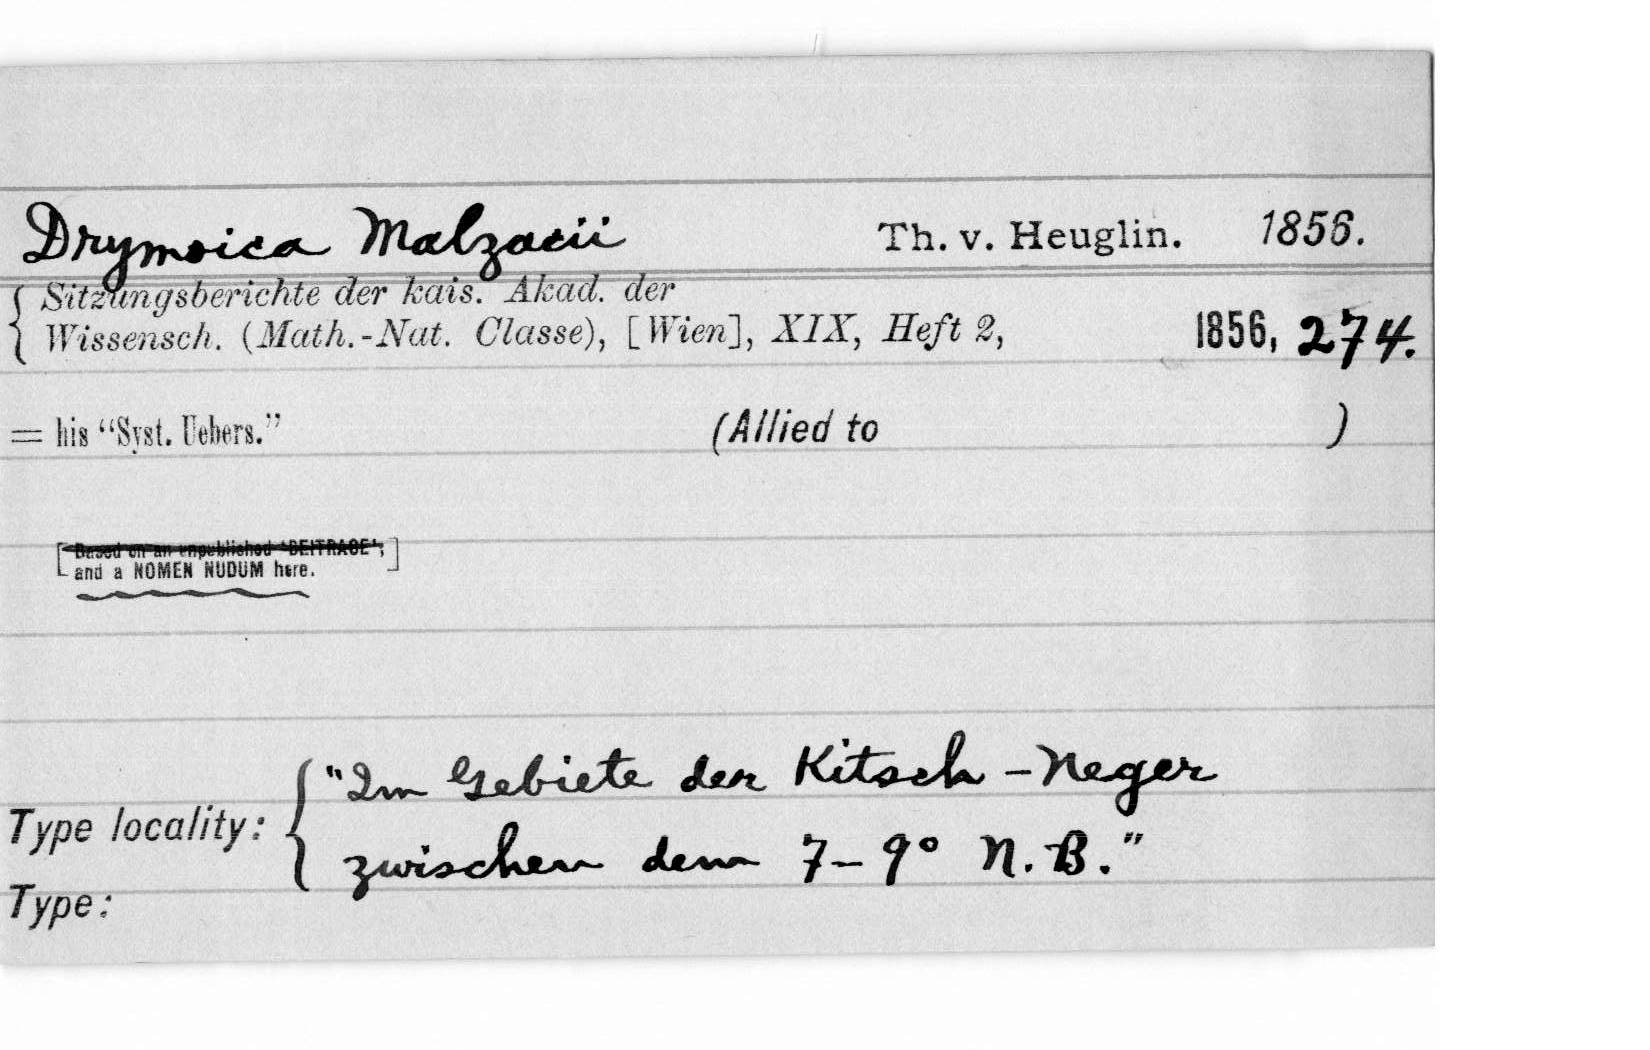 Drymoica Malzacii Th. v. Heuglin. 1856.
Sitzungsberichte der kais. Akad. der
Wissensch. (Math.-Nat. Classe), [Wien], XIX, Heft 2, 1856, 274.
= his “Syst. Uebers.” (Allied to )
[Based on an unpublished ‘BEITRAGE’;
and a NOMEN NUDUM here.]
"Im Gebiete der Kitsch-Neger
Type locality:
zwischen dem 7-9° N.B."
Type: